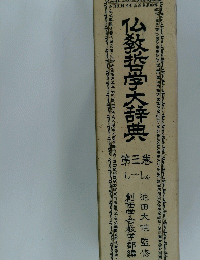 仏教哲学大辞典
第三巻
し―しよ
池田大作 監修
創価学会教学部編